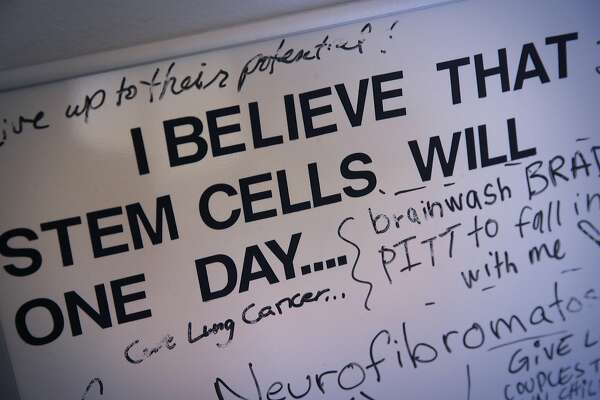 live up to their potential!
I BELIEVE THAT
STEM CELLS WILL
ONE DAY....
brainwash BRAD
PITT to fall in
with me
Cure Lung Cancer...
Neurofibromatos
GIVE L
COUPLES T